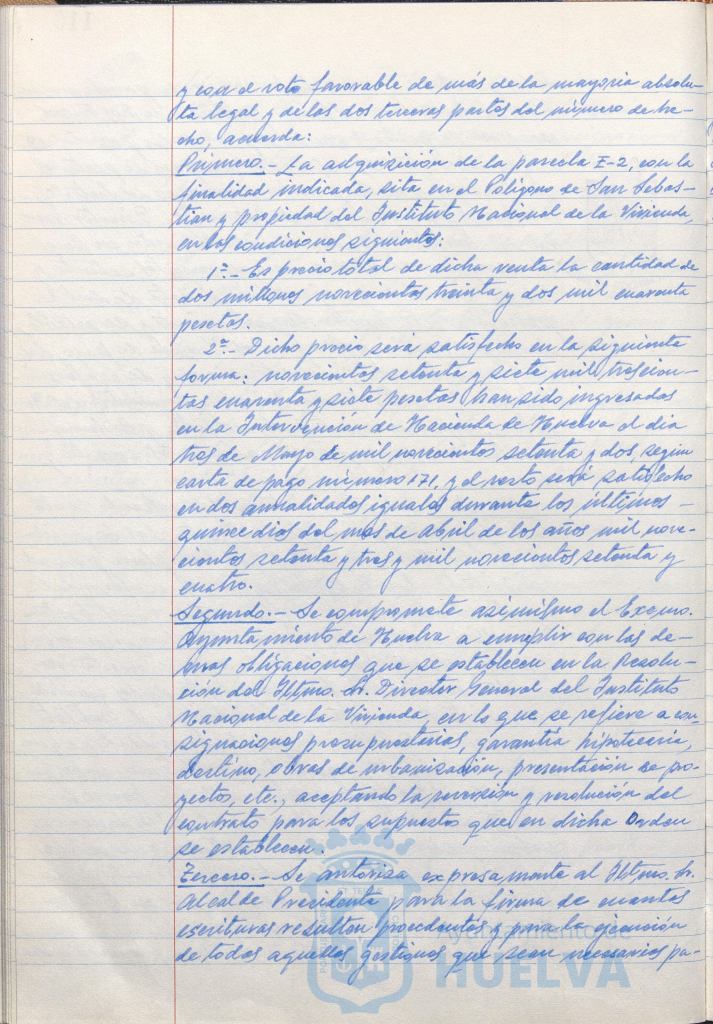 y con el voto favorable de más de la mayoría absolu-
ta legal y de las dos terceras partes del número de he-
cho, acuerda:
Primero.- La adquisición de la parcela E-2, con la
finalidad indicada, sita en el Polígono de San Sebas-
tian y propiedad del Instituto Nacional de la Vivienda,
en las condiciones siguientes:
1ª.- Es precio total de dicha venta la cantidad de
dos millones novecientas treinta y dos mil cuarenta
pesetas.
2ª.- Dicho precio será satisfecho en la siguiente
forma: novecientas setenta y siete mil trescien-
tas cuarenta y siete pesetas han sido ingresadas
en la Intervención de Hacienda de Huelva el dia
tres de Mayo de mil novecientos setenta y dos, según
carta de pago número 171, y el resto será satisfecho
en dos anualidades iguales durante los últimos -
quince dias del mes de Abril de los años mil nove-
cientos setenta y tres y mil novecientos setenta y
cuatro.
Segundo.- Se compromete asimismo el Excmo.
Ayuntamiento de Huelva a cumplir con las de-
mas obligaciones que se establecen en la Resolu-
ción del Iltmo. Sr. Director General del Instituto
Nacional de la Vivienda, en lo que se refiere a con-
signaciones presupuestarias, garantía hipotecaria,
destino, obras de urbanización, presentación de pro-
yectos, etc., aceptando la reversión y resolución del
contrato para los supuestos que en dicha Orden
se establecen.
Tercero.- Se autoriza expresamente al Iltmo. Sr.
Alcalde Presidente para la firma de cuantas
escrituras resulten procedentes y para la ejecución
de todas aquellas gestiones que sean necesarias pa-
Ayuntamiento de
HUELVA